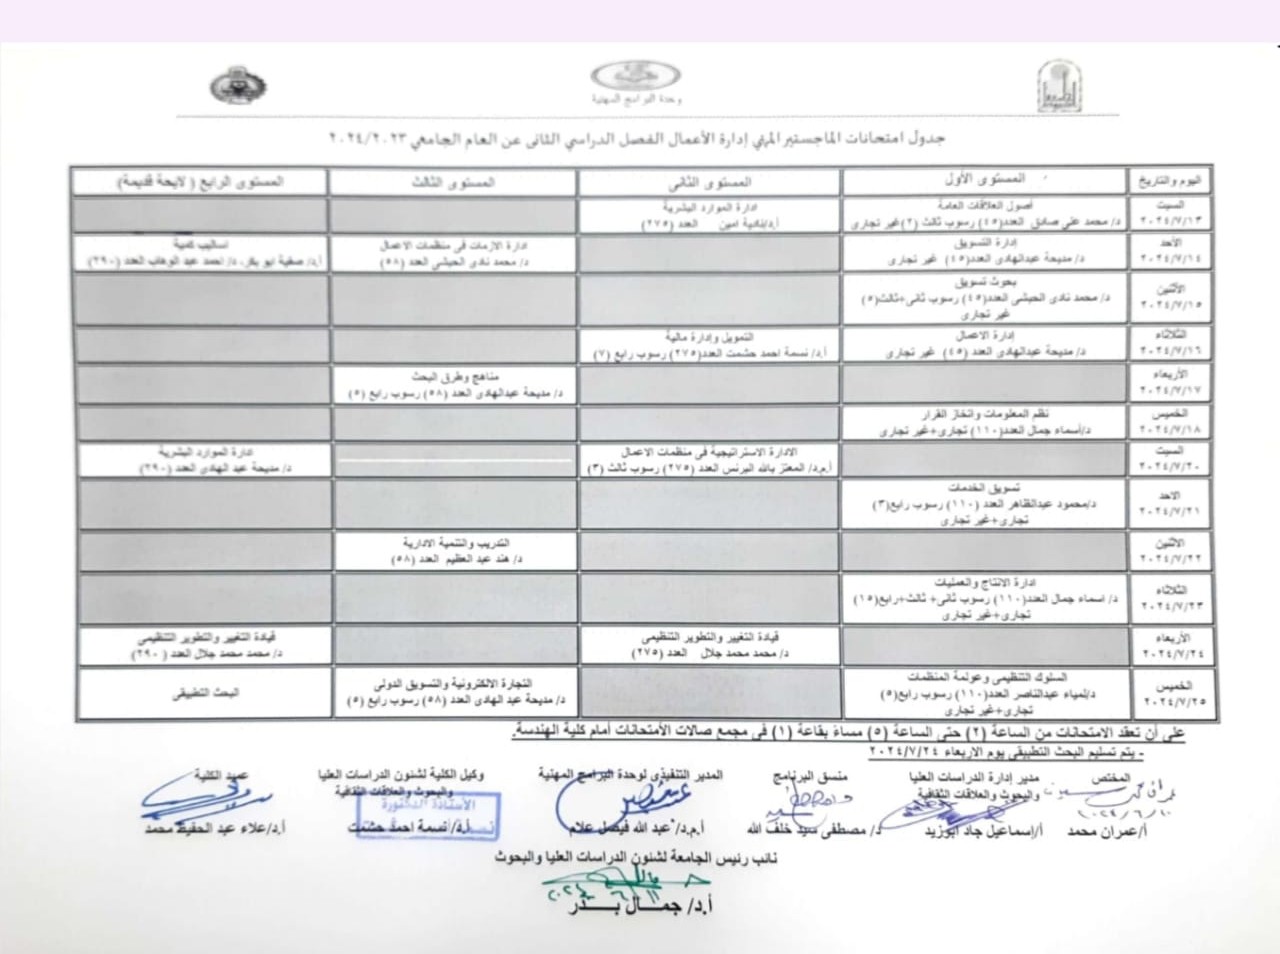 وحدة البرامج المهنية
جدول امتحانات الماجستير المهني إدارة الأعمال الفصل الدراسي الثانى عن العام الجامعي ٢٠٢٤/٢٠٢٣
اليوم والتاريخ
المستوى الأول
المستوى الثانى
المستوى الثالث
المستوى الرابع ( لايحة قديمة)
السبت
٢٠٢٤/٧/١٣
أصول العلاقات العامة
د/ محمد على صادق العدد(٤٥) رسوب ثالث (٢)غير تجارى
ادارة الموارد البشرية
أ.د/نادية امين العدد (٢٧٥)
الأحد
٢٠٢٤/٧/١٤
إدارة التسويق
د/ مديحة عبدالهادى العدد(٤٥) غير تجارى
ادارة الازمات فى منظمات الاعمال
د/ محمد نادى الحيشى العدد (٥٨)
اساليب كمية
أ.د/ صفية ابو بكر، د/ احمد عبد الوهاب العدد (٢٩٠)
الأثنين
٢٠٢٤/٧/١٥
بحوث تسويق
د/ محمد نادى الحيشى العدد(٤٥) رسوب ثانى+ثالث(٥)
غير تجارى
الثلاثاء
٢٠٢٤/٧/١٦
إدارة الاعمال
د/ مديحة عبدالهادى العدد (٤٥) غير تجارى
التمويل وإدارة مالية
أ.د/ نسمة احمد حشمت العدد(٢٧٥) رسوب رابع (٧)
الأربعاء
٢٠٢٤/٧/١٧
مناهج وطرق البحث
د/ مديحة عبدالهادى العدد (٥٨) رسوب رابع (٥)
الخميس
٢٠٢٤/٧/١٨
نظم المعلومات واتخاز القرار
د/أسماء جمال العدد(١١٠) تجارى+غير تجارى
السبت
٢٠٢٤/٧/٢٠
الادارة الاستراتيجية فى منظمات الاعمال
أ.م.د/ المعتز بالله البرنس العدد (٢٧٥) رسوب ثالث (٣)
ادارة الموارد البشرية
د/ مديحة عبد الهادى العدد (٢٩٠)
الاحد
٢٠٢٤/٧/٢١
تسويق الخدمات
د/محمود عبدالظاهر العدد (١١٠) رسوب رابع(٣)
تجارى+غير تجارى
الاثنين
٢٠٢٤/٧/٢٢
التدريب والتنمية الادارية
د/ هند عبد العظيم العدد (٥٨)
الثلاثاء
٢٠٢٤/٧/٢٣
ادارة الانتاج والعمليات
د/ اسماء جمال العدد(١١٠) رسوب ثانى+ ثالث+رابع(١٥)
تجارى+غير تجارى
الأربعاء
٢٠٢٤/٧/٢٤
قيادة التغيير والتطوير التنظيمى
د/ محمد محمد جلال العدد (٢٧٥)
قيادة التغيير والتطوير التنظيمى
د/ محمد محمد جلال العدد (٢٩٠)
الخميس
٢٠٢٤/٧/٢٥
السلوك التنظيمى وعولمة المنظمات
د/لمياء عبدالناصر العدد(١١٠) رسوب رابع(٥)
تجارى+غير تجارى
التجارة الالكترونية والتسويق الدولى
د/ مديحة عبد الهادى العدد (٥٨) رسوب رابع (٥)
البحث التطبيقى
على أن تعقد الامتحانات من الساعة (٢) حتى الساعة (٥) مساءً بقاعة (١) فى مجمع صالات الأمتحانات أمام كلية الهندسة.
- يتم تسليم البحث التطبيقى يوم الاربعاء ٢٠٢٤/٧/٢٤
المختص
مدير إدارة الدراسات العليا
والبحوث والعلاقات الثقافية
منسق البرنامج
المدير التنفيذى لوحدة البرامج المهنية
وكيل الكلية لشئون الدراسات العليا
والبحوث والعلاقات الثقافية
عميد الكلية
الأستاذة الدكتورة
٢٠٢٤/٦/١٠
أ/عمران محمد
أ/إسماعيل جاد ابوزيد
د/ مصطفى سيد خلف الله
أ.م.د/ عبد الله فيصل علام
أ.د/ نسمة احمد حشمت
أ.د/علاء عبد الحفيظ محمد
نائب رئيس الجامعة لشئون الدراسات العليا والبحوث
أ.د/ جمال بدر